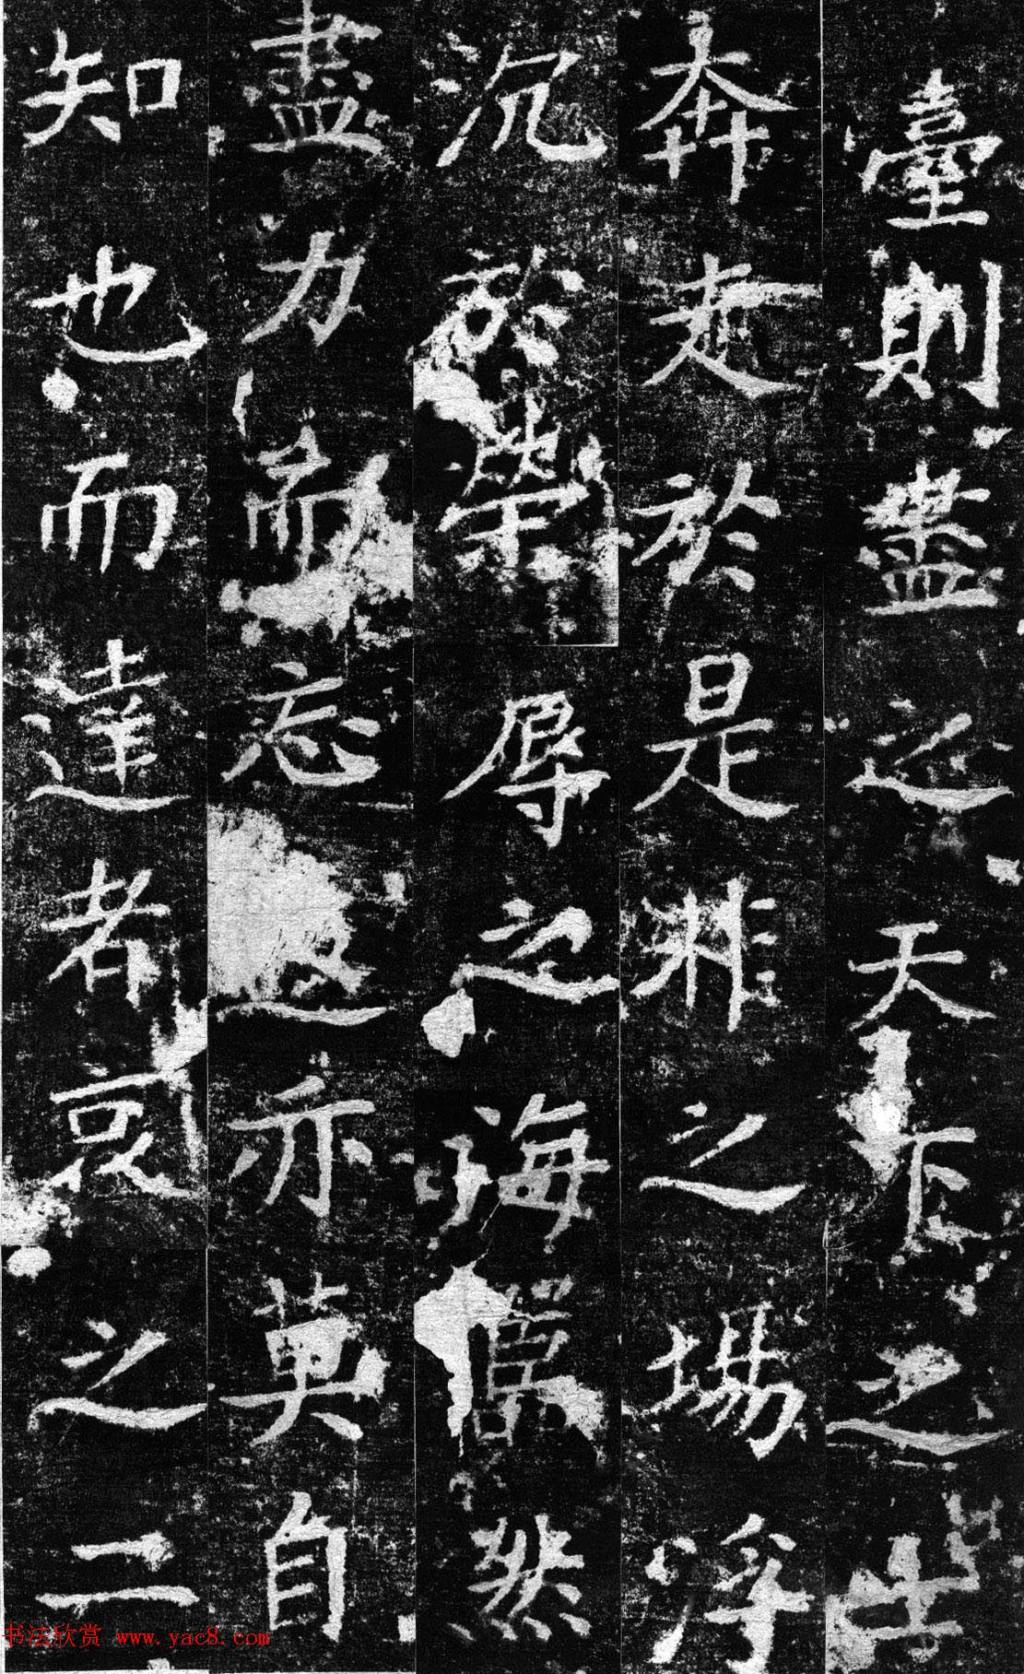 臺則盡之天下之士
奔走於是非之場浮
沉於榮辱之海嚻然
盡力而忘返亦莫自
知也而達者哀之二
书法欣赏 www.yac8.com